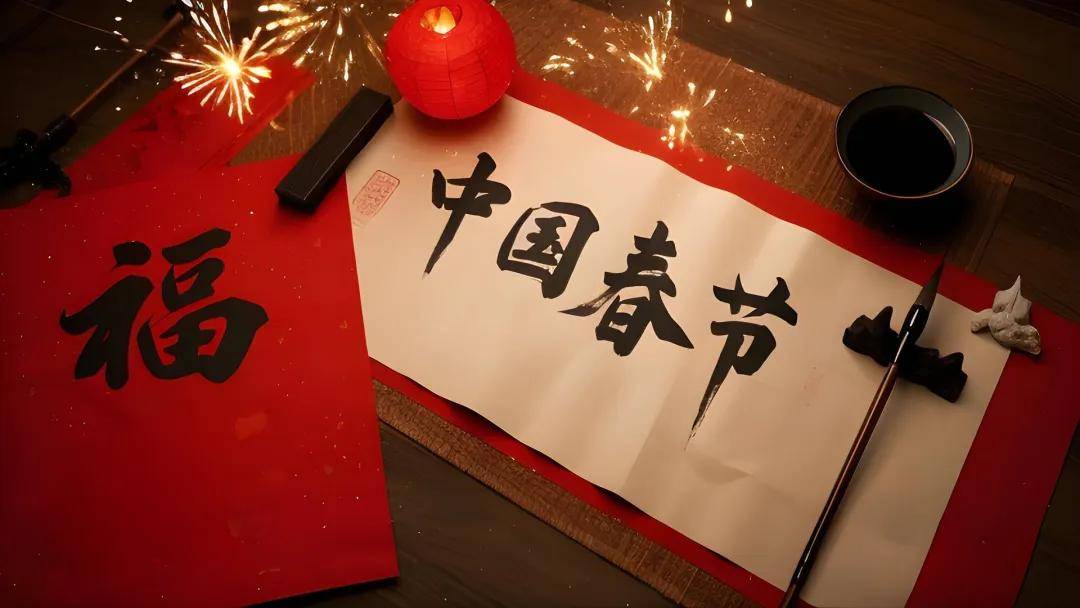 福
中国春节